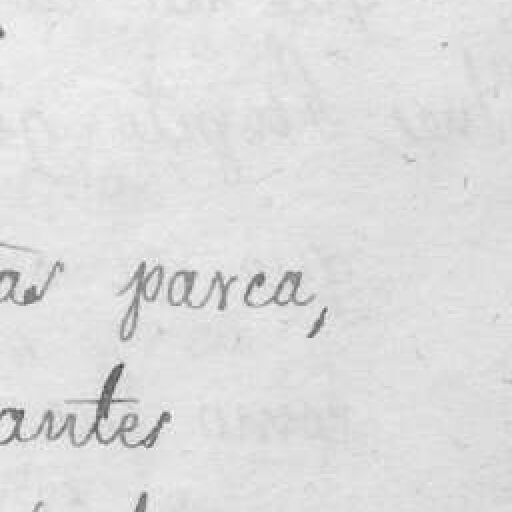 as parca,
antes